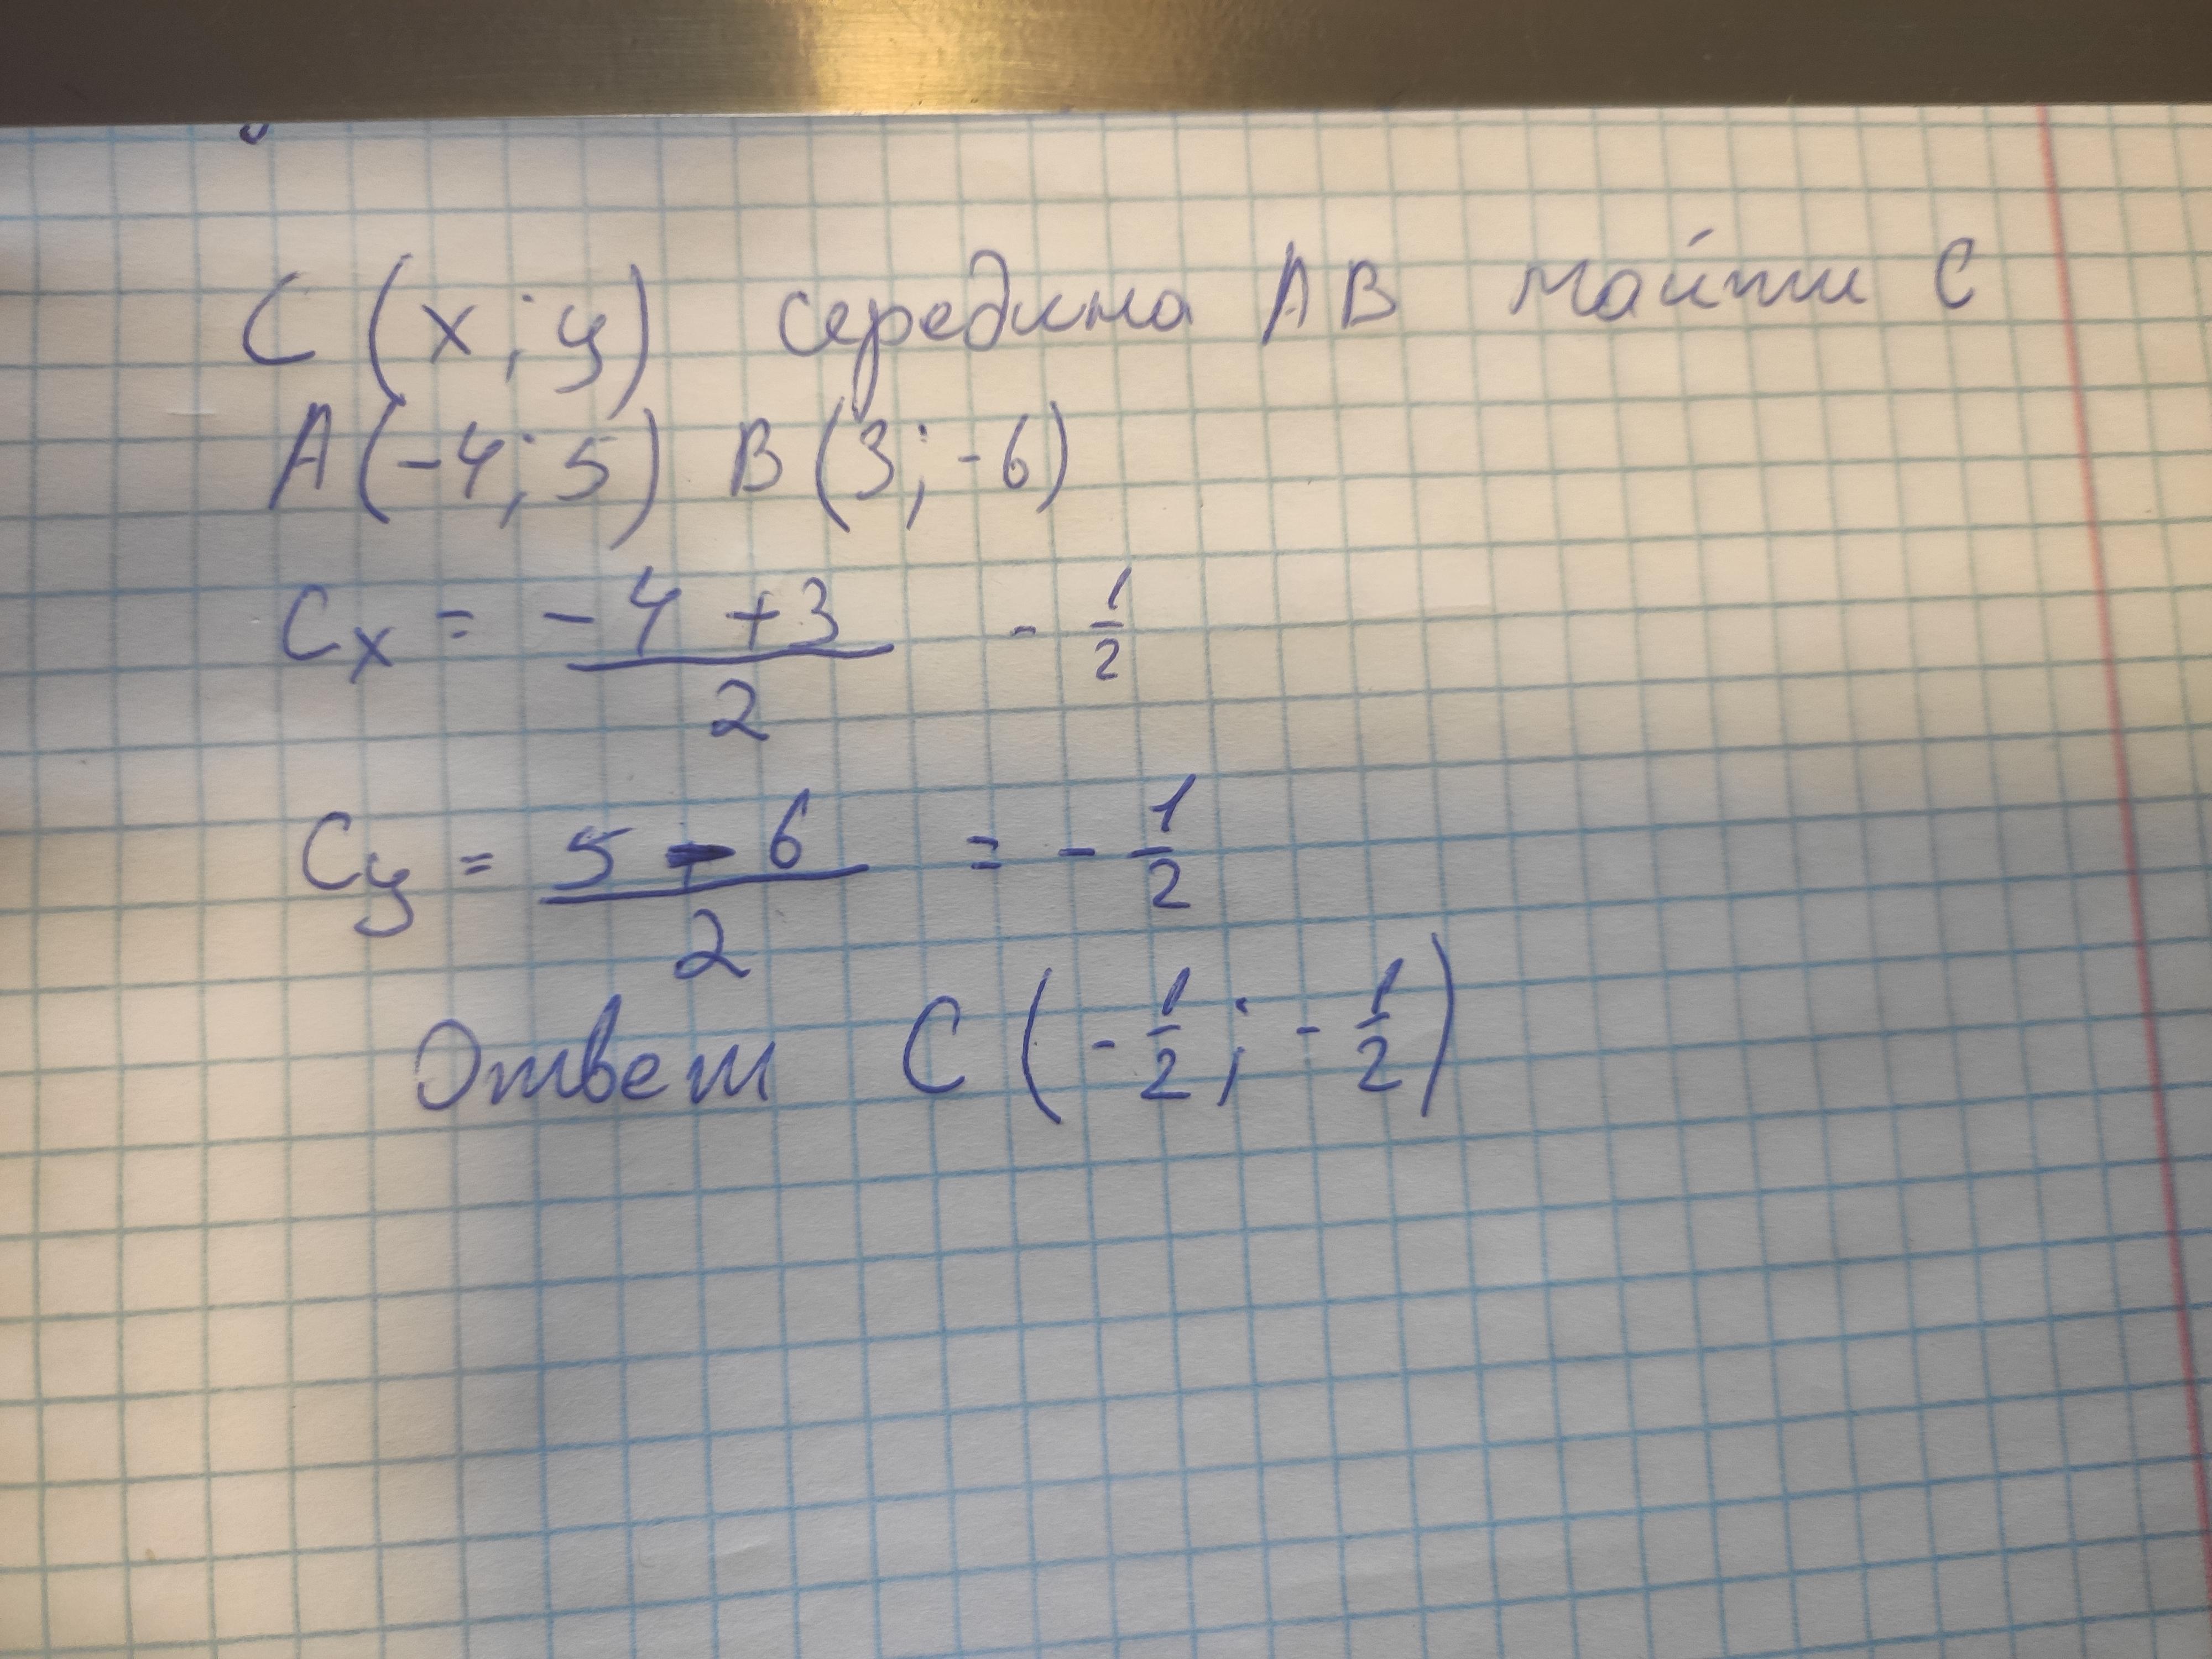 C (x; y) середина AB найти C
A(-4; 5) B(3; -6)
Cx = -4 + 3 / 2 - 1/2
Cy = 5 - 6 / 2 = - 1/2
Ответ C (- 1/2; - 1/2)